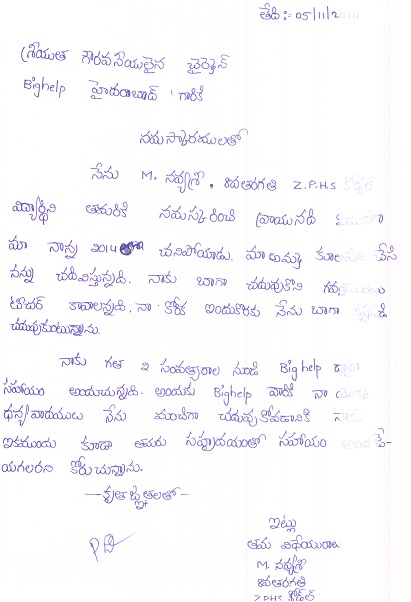 తేది:- 05/11/2
శ్రీయుత గౌరవనీయులైన చైర్మెన్
Bighelp హైదరాబాద్ గారికి
నమస్కారములతో
నేను M. నవ్యశ్రీ, 8వతరగతి Z.P.H.S
విద్యార్థిని తమరికి నమస్కరించి వ్రాయునది
మా నాన్న 2014 చనిపోయాడు. మా అమ్మ కూలి చేసి
నన్ను చదివిస్తున్నది. నాకు బాగా చదువుకొని
టీచర్ కావాలన్నది. నా కోరిక ఇందుకొరకు నేను బాగా
చదువుకుంటున్నాను.
నాకు గత 2 సంవత్సరాల నుండి Bighelp ద్వారా
సహాయం అందుచున్నది. అందుకు Bighelp వారికి నా
ధన్యవాదములు నేను మంచిగా చదువుకోవడానికి నాకు
ఇకముందు కూడా తమరు సహృదయంతో సహాయం
యగలరని కోరుచున్నాను.
—కృతజ్ఞతలతో—
ఇట్లు
తమ విధేయురాలు
M. నవ్యశ్రీ
8వతరగతి
Z.P.H.S